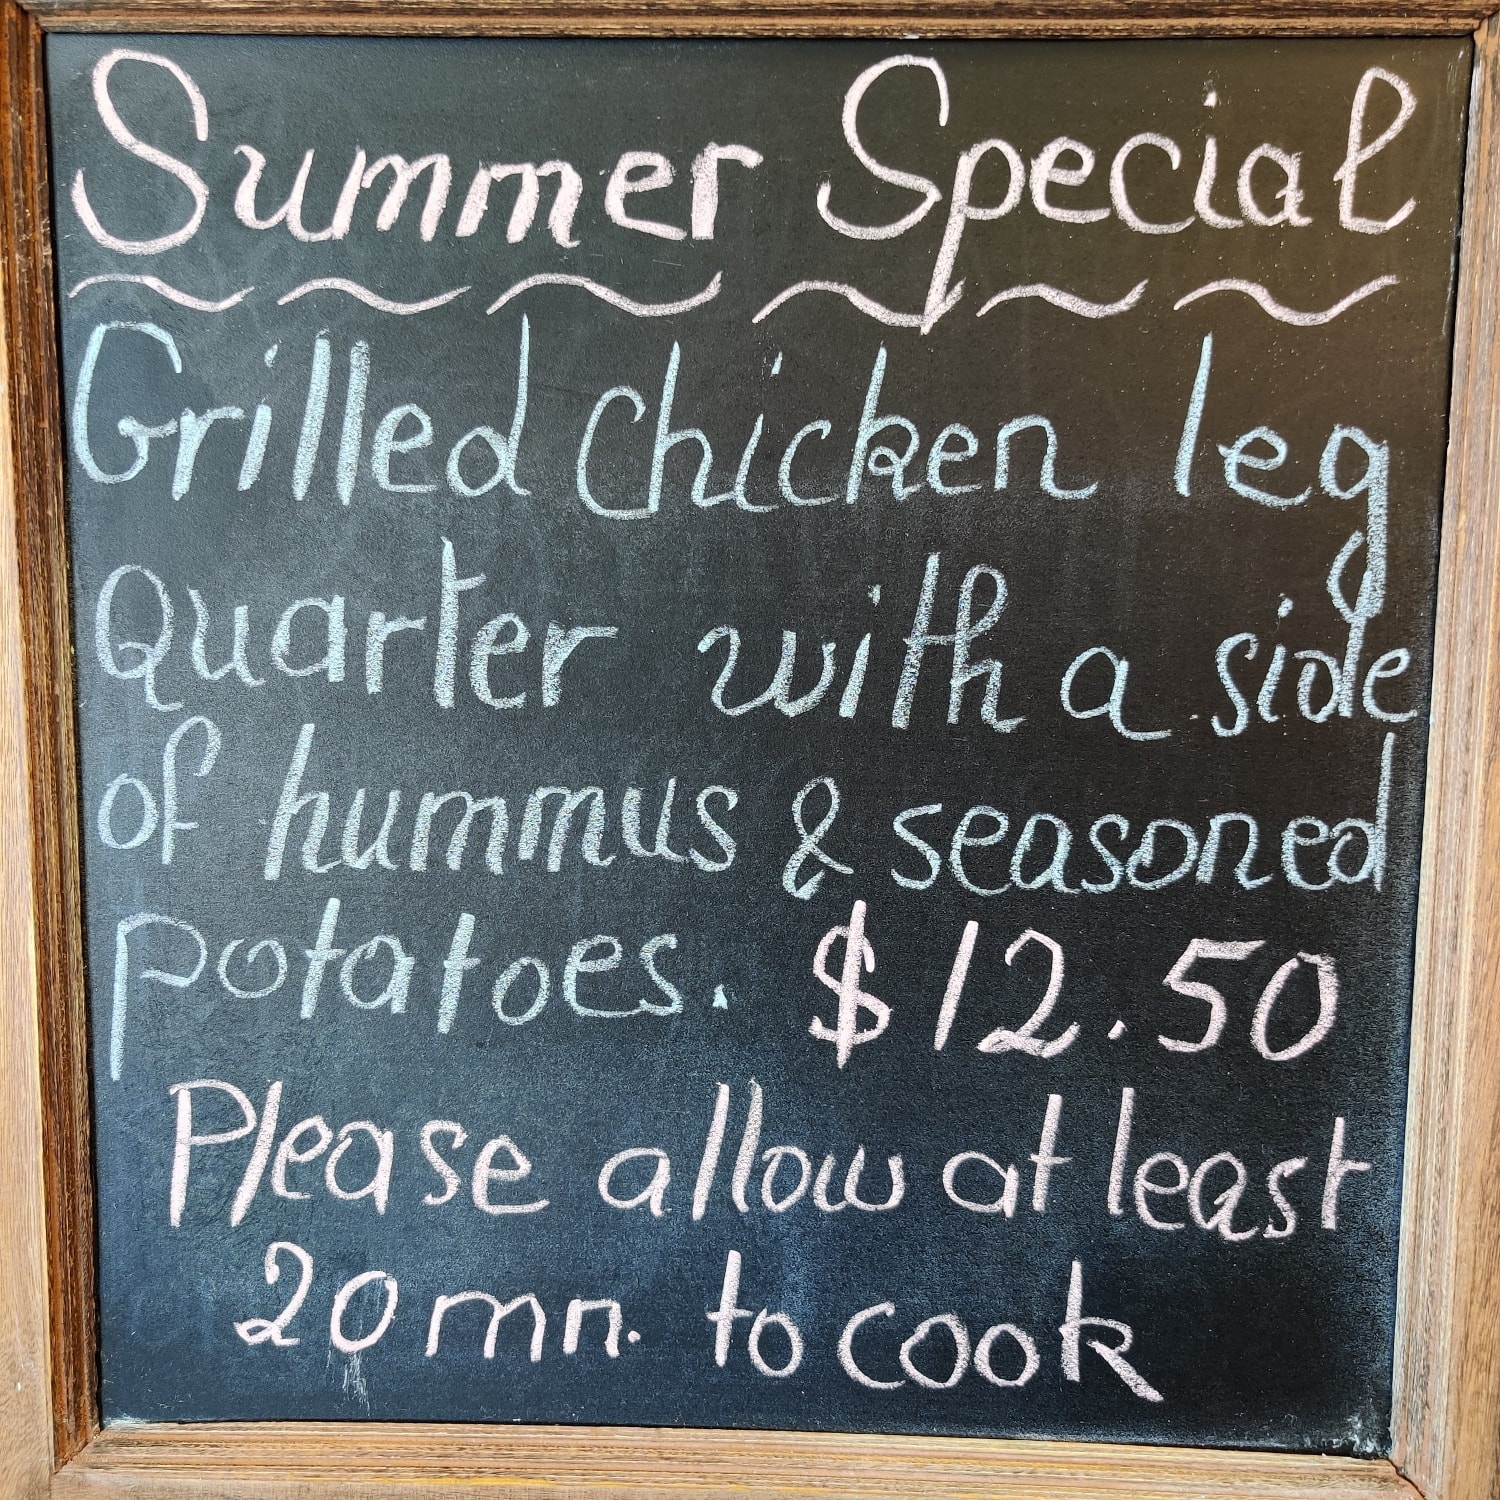 Summer Special
Grilled chicken leg
Quarter with a side
of hummus & seasoned
potatoes. $12.50
Please allow at least
20 mn. to cook